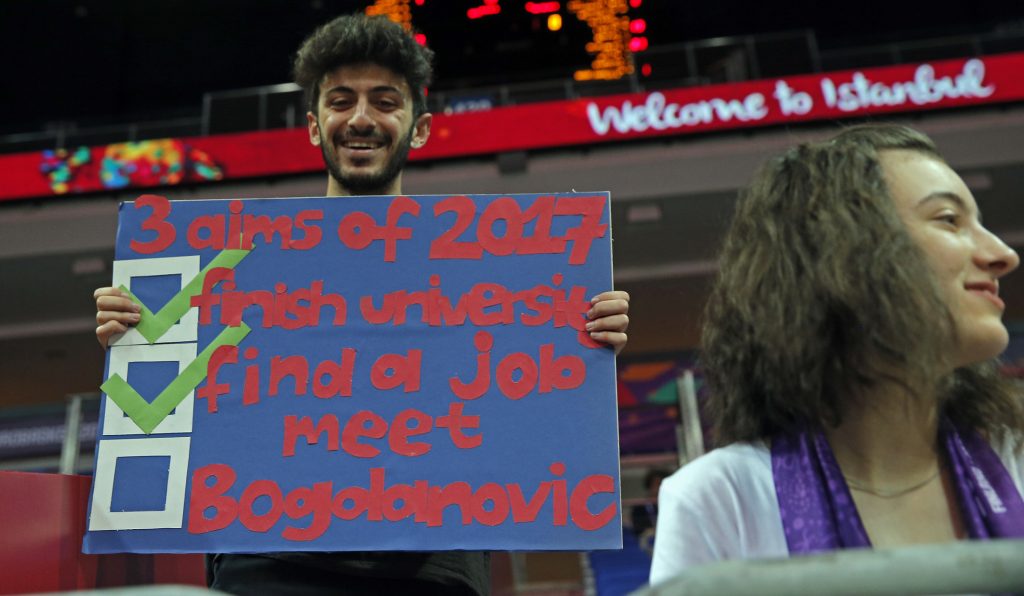 Welcome to Istanbul
3 aims of 2017
finish university
find a job
meet
Bogdanovic